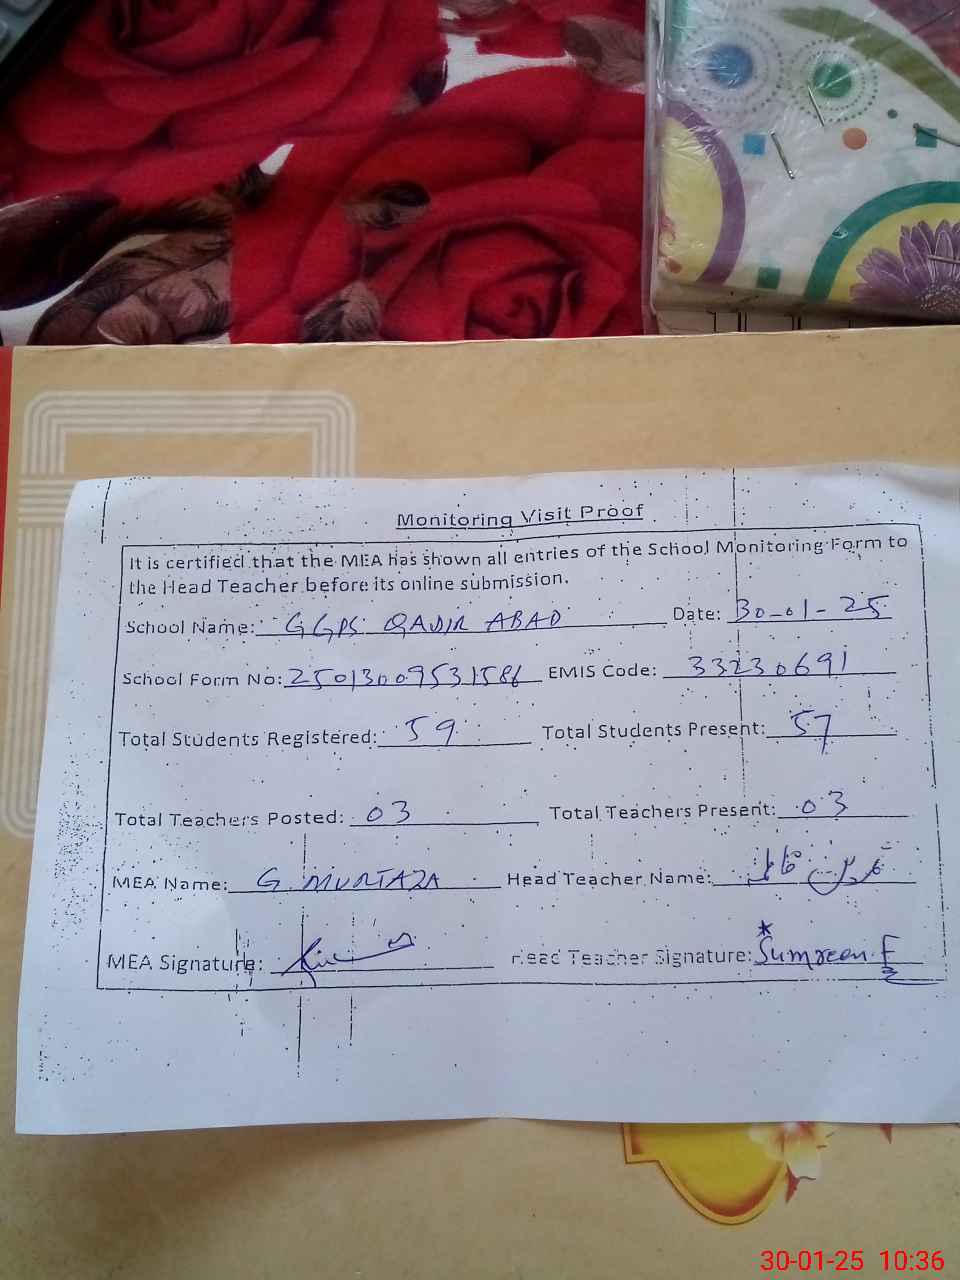 Monitoring Visit Proof
It is certified that the MEA has shown all entries of the School Monitoring Form to
the Head Teacher before its online submission.
School Name: GGPS QADIR ABAD Date: 30-01-25
School Form No: 25013009531586 EMIS Code: 33230691
Total Students Registered: 59 Total Students Present: 57
Total Teachers Posted: 03 Total Teachers Present: 03
MEA Name: G. MURTAZA Head Teacher Name:
MEA Signature: Head Teacher Signature: Sumreen F
30-01-25 10:36